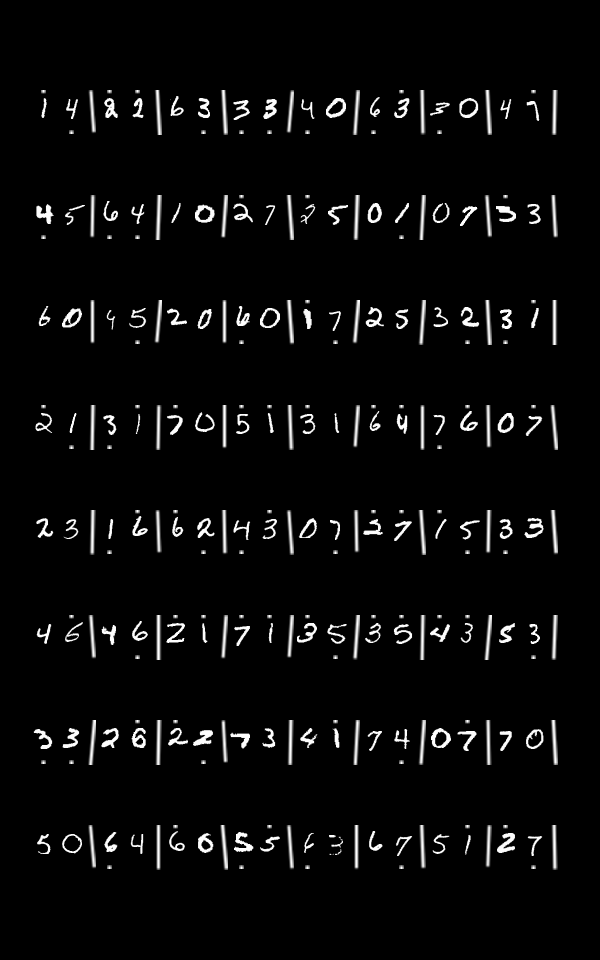 1̇ 4̣ | 2̇ 2̇ | 6 3̣ | 3̣ 3̣ | 4̣ 0 | 6̣ 3̇ | 3̣ 0 | 4 7̇ |
4̣ 5 | 6̣ 4̣ | 1 0 | 2̇ 7 | 2̇ 5 | 0 1̣ | 0 7 | 3̇ 3 |
6 0 | 4 5̣ | 2 0 | 6̣ 0 | 1̇ 7 | 2 5 | 3 2̣ | 3̣ 1̇ |
2̇ 1̣ | 3̣ 1̇ | 7̇ 0 | 5̇ 1̇ | 3̇ 1 | 6̇ 4̇ | 7̣ 6̇ | 0 7̇ |
2 3 | 1̣ 6̇ | 6̇ 2̣ | 4̣ 3̇ | 0 7̣ | 3̇ 7̇ | 1̇ 5̣ | 3̣ 3 |
4 6̇ | 4 6̣ | 2̇ 1̇ | 7̇ 1̇ | 3̇ 5̣ | 3̇ 5̇ | 4̇ 3̇ | 5 3̣ |
3̣ 3̣ | 2 6̇ | 2̇ 2̣ | 7 3 | 4 1̇ | 7 4̣ | 0 7̇ | 7 0 |
5 0 | 6̣ 4 | 6̇ 0 | 5̇ 5̇ | 6̣ 3 | 6 7̣ | 5 1̇ | 2̇ 7̣ |